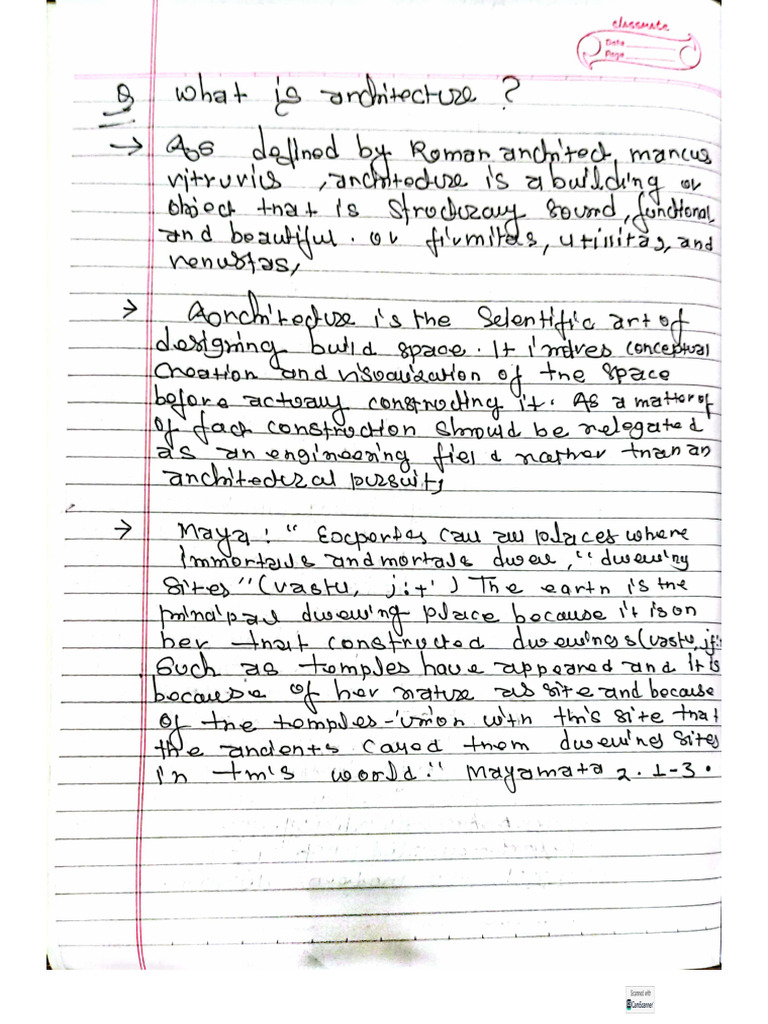 classmate
Date
Page
Q What is architecture ?
→ As defined by Roman architect, marcus
vitruvius, architecture is a building or
object that is structuraly sound, functional,
and beautiful. or firmitas, utilitas, and
venustas,
→ Aarchitecture is the scientific art of
designing build space. It invoves conceptual
creation and visualization of the space
before actualy constructing it. As a matter of
of fact construction should be relegated
as an engineering field rather than an
architectural pursuit,
→ Maya : " Experts call all places where
immortals and mortals dwell, " dwelling
sites " (vastu, jit') The earth is the
principal dwelling place because it is on
her that constructed dwellings (vastu, jit
Such as temples have appeared and It is
because of her nature as site and because
of the temples-union with this site that
the ancients called them dwelling sites
in this world." Mayamata 2.1-3.
Scanned with
CamScanner